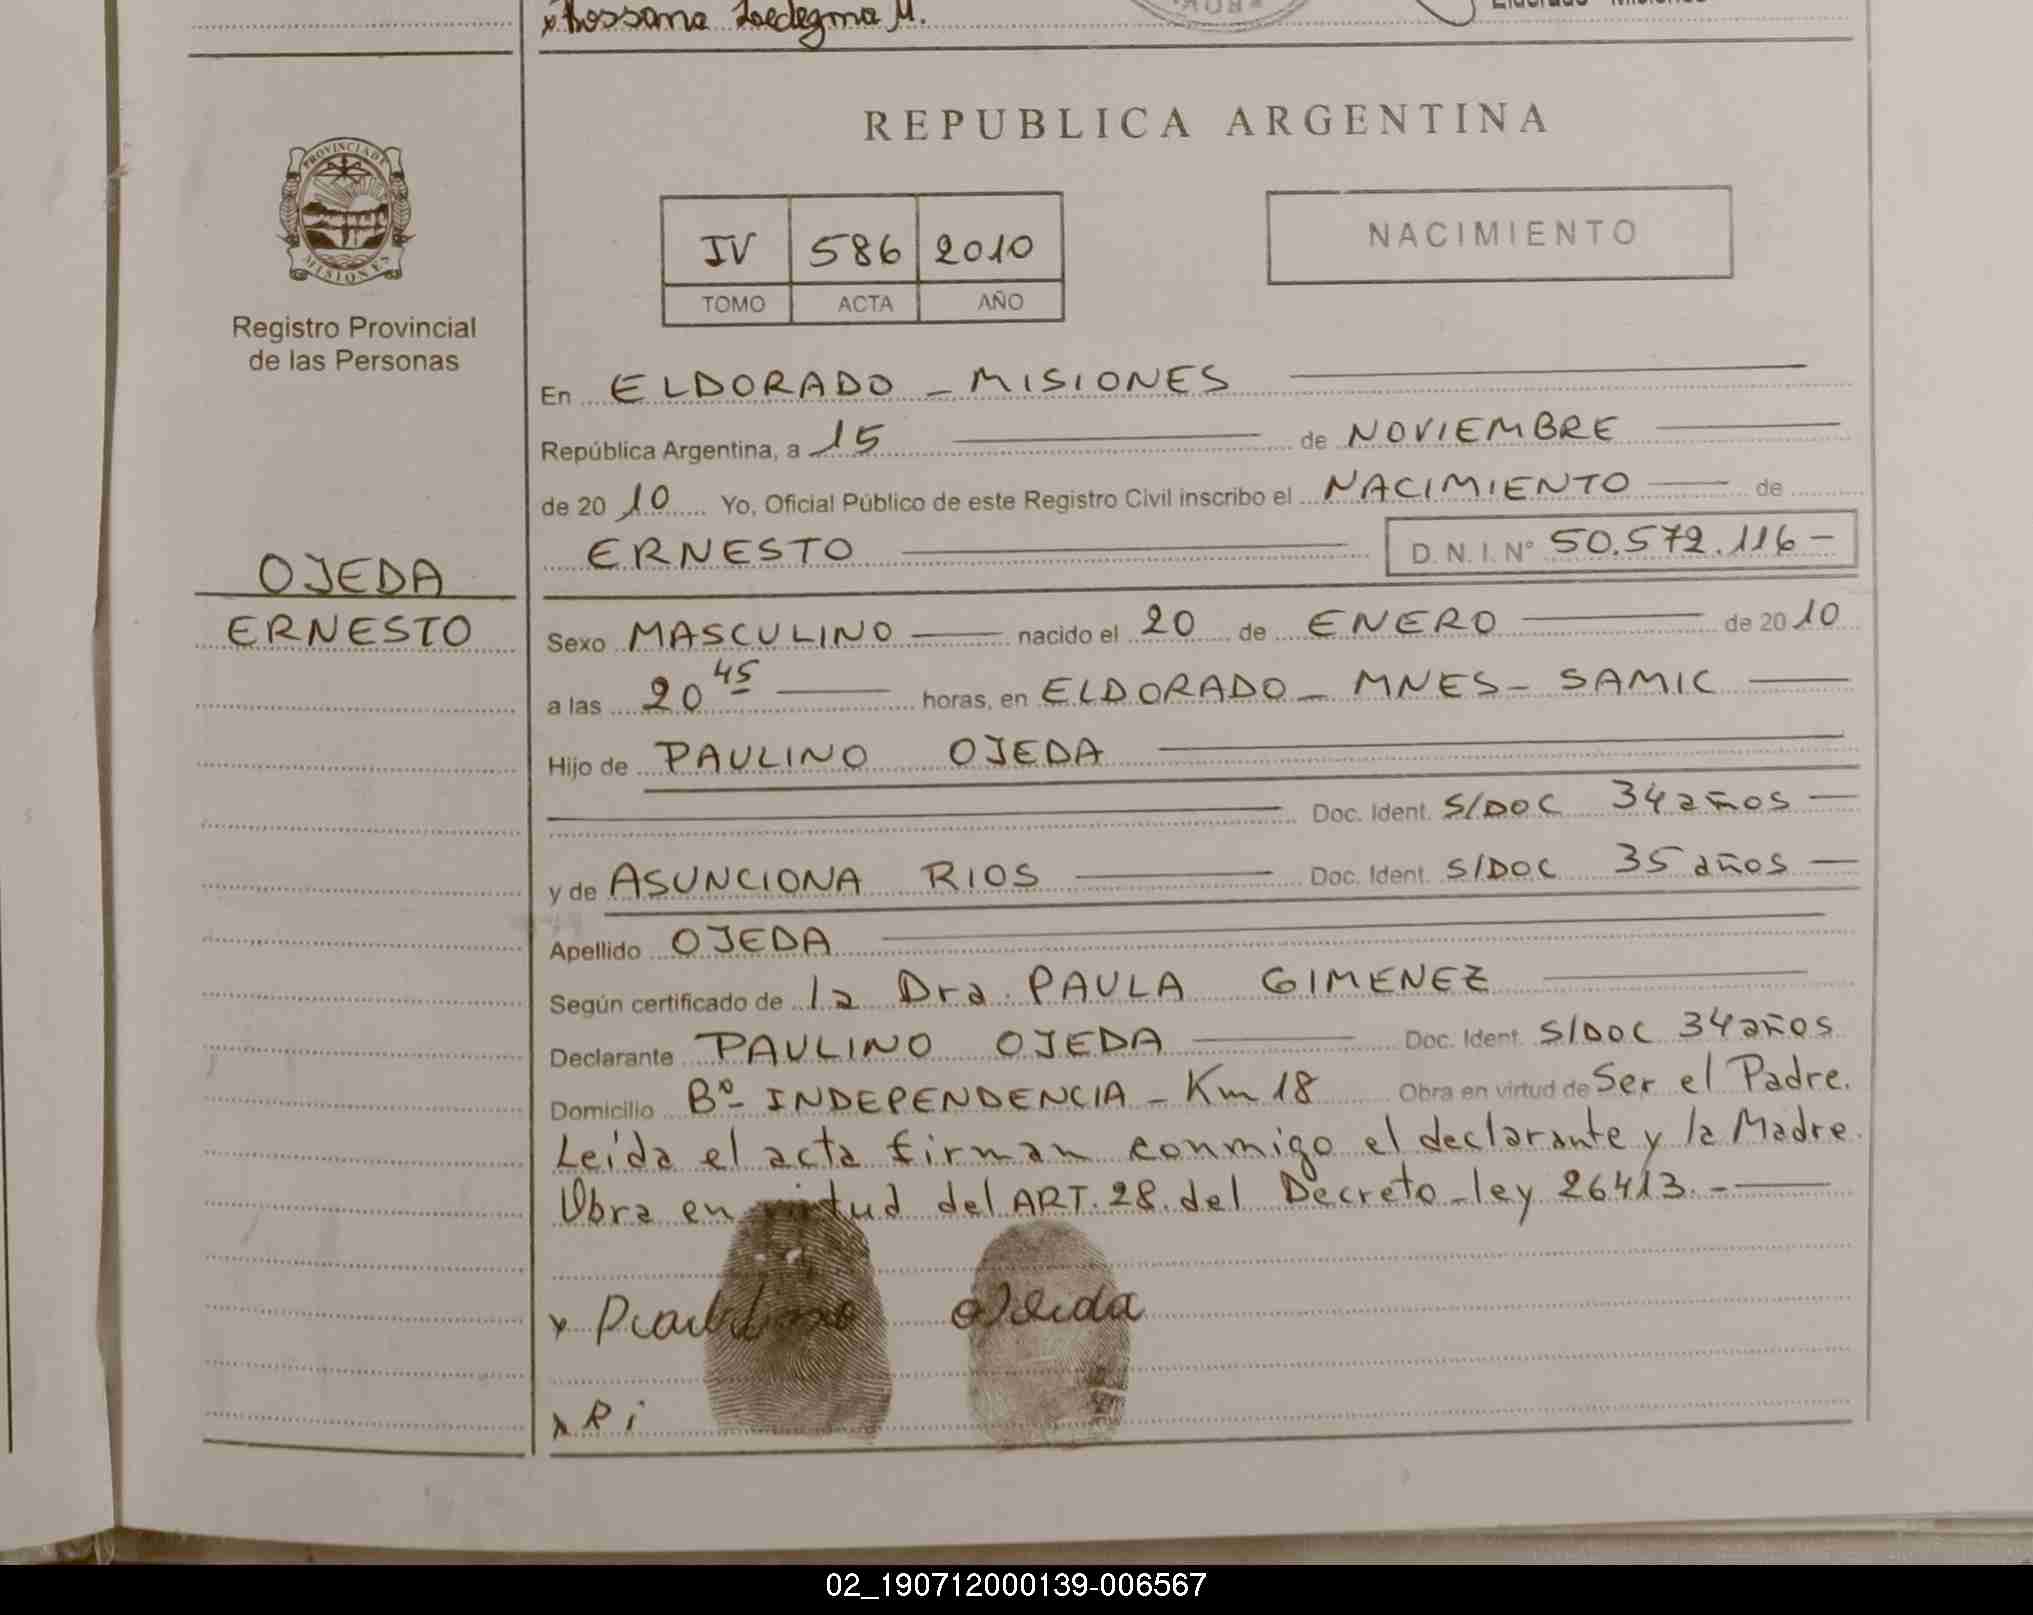 x Rossana Ledesma M.
REPUBLICA ARGENTINA
PROVINCIA DE
MISIONES
Registro Provincial
de las Personas
IV 586 2010
TOMO ACTA AÑO
NACIMIENTO
En ELDORADO - MISIONES
República Argentina, a 15 de NOVIEMBRE
de 20 10 Yo, Oficial Público de este Registro Civil inscribo el NACIMIENTO de
ERNESTO D. N. I. N° 50.572.116-
OJEDA
ERNESTO
Sexo MASCULINO nacido el 20 de ENERO de 20 10
a las 20 45 horas, en ELDORADO - MNES - SAMIC
Hijo de PAULINO OJEDA
Doc. Ident. S/DOC 34 años
y de ASUNCIONA RIOS Doc. Ident. S/DOC 35 años
Apellido OJEDA
Según certificado de la Dra. PAULA GIMENEZ
Declarante PAULINO OJEDA Doc. Ident. S/DOC 34 años
Domicilio Bº INDEPENDENCIA - Km 18 Obra en virtud de Ser el Padre.
Leída el acta firman conmigo el declarante y la Madre.
Obra en virtud del ART. 28 del Decreto-ley 26413.-
x ojeida
x Ri
02_190712000139-006567